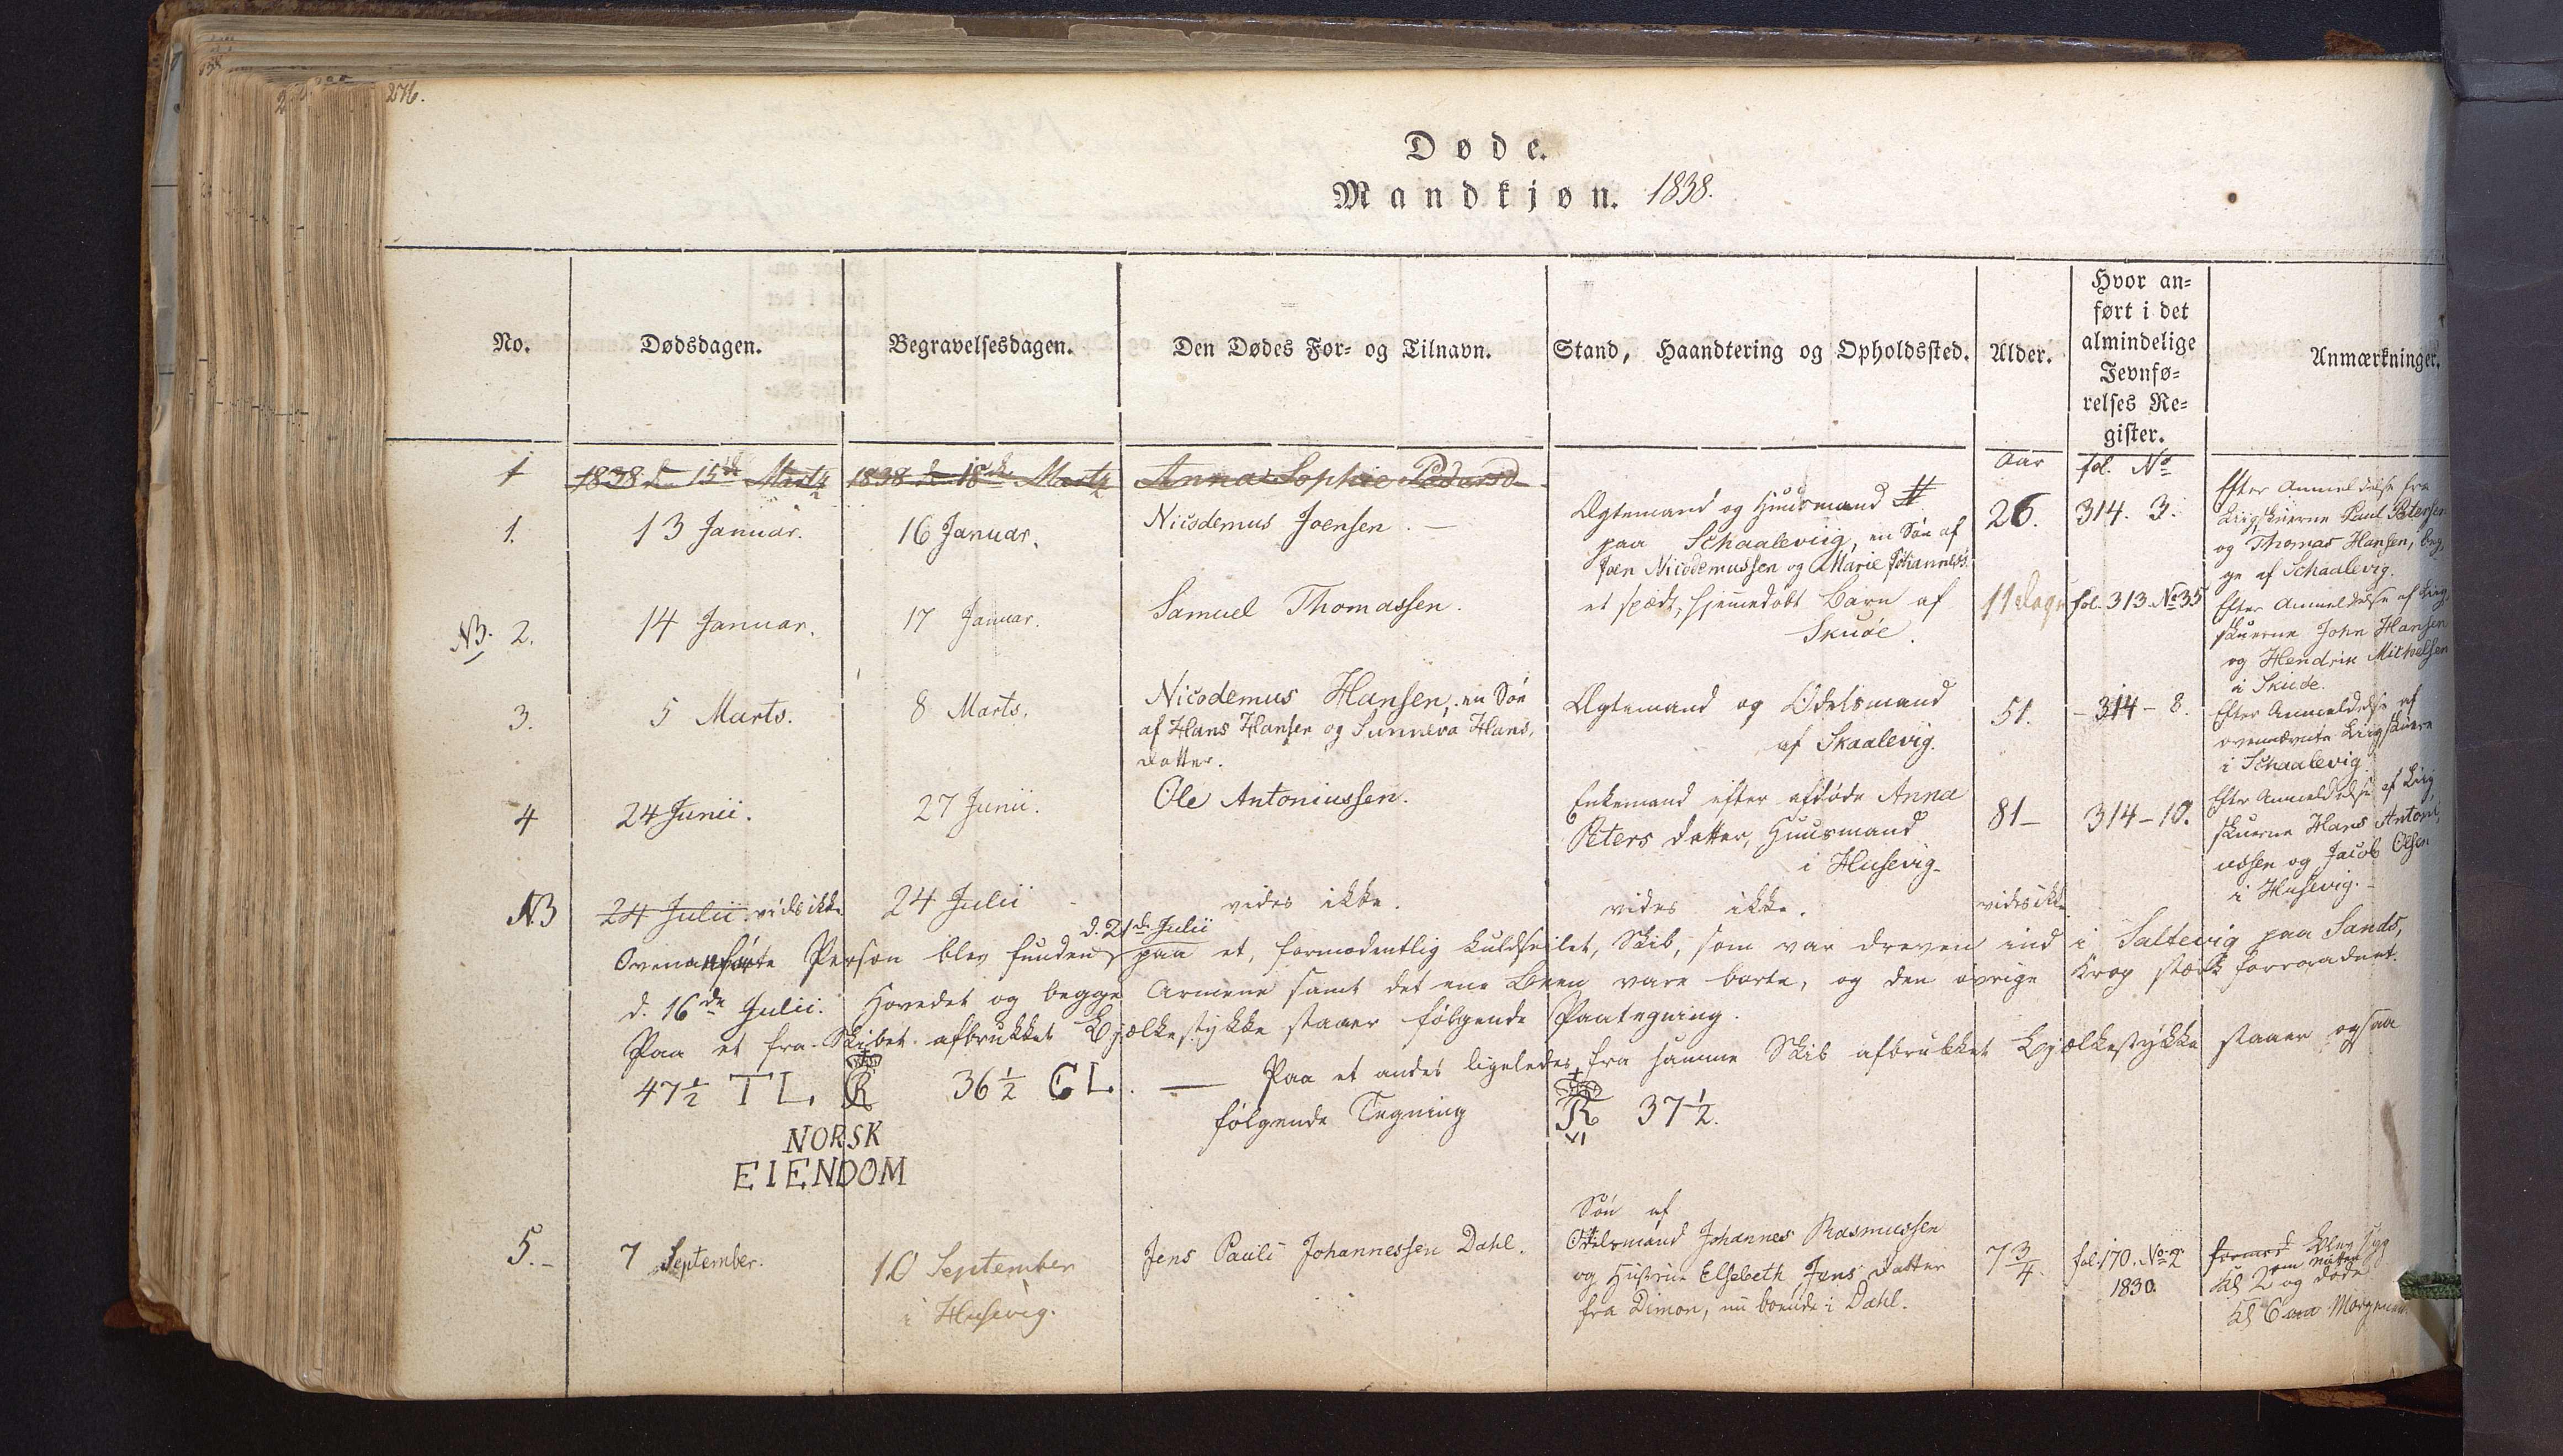 276.
Døde.
Mandkjøn. 1838.
No.
Dødsdagen.
Begravelsesdagen.
Den Dødes For- og Tilnavn.
Stand, Haandtering og Opholdssted.
Alder.
Hvor an-
ført i det
almindelige
Jevnfø-
relses Re-
gister.
Anmærkninger.
Aar
fol. No
1 1838 d. 15de Marts 1838 d. 18de Marts Anna Sophie Pedersd
1. 13 Januar. 16 Januar. Nicodemus Joensen. —
Ægtemand og Huusmand
paa Schaalevig, en Søn af
Joen Nicodemussen og Marie Johannesd.
26. 314. 3.
Efter Anmeldelse fra
Liigskuerne Paul Petersen
og Thomas Hansen, beg-
ge af Schaalevig.
NB. 2. 14 Januar. 17 Januar. Samuel Thomassen.
et spædt, hjemmedøbt Barn af
Skuöe.
11 Dage fol. 313. No 35
Efter Anmeldelse af Liig-
skuerne John Hansen
og Hendrik Michelsen
i Skuöe.
3. 5 Marts. 8 Marts.
Nicodemus Hansen, en Søn
af Hans Hansen og Sunneva Hans-
datter.
Ægtemand og Odelsmand
af Skaalevig.
51. - 314 - 8.
Efter Anmeldelse af
ovennævnte Liigskuere
i Schaalevig.
4 24 Junii. 27 Junii. Ole Antoniussen.
Enkemand efter afdøde Anna
Peters datter, Huusmand
i Husevig.
81 - 314 - 10.
Efter Anmeldelse af Liig-
skuerne Hans Antoni-
ussen og Jacob Olsen
i Husevig. -
NB 24 Julii. vides ikke 24 Julii vides ikke. vides ikke. vides ikke
d. 21de Julii
Ovenanførte Person blev funden paa et, formodentlig kuldseilet, Skib, som var dreven ind i Saltevig paa Sands,
d. 16de Julii. Hovedet og begge Armene samt det ene Been vare borte, og den øvrige Krop stærk forraadnet.
Paa et fra Skibet afbrukket Bjælkestykke staaer følgende Paategning.
47½ T L. R 36½ C L. — Paa et andet ligeledes fra samme Skib afbrukket Bjælkestykke staaer ogsaa
følgende Tegning R 37½.
VI
NORSK
EIENDOM
5. - 7 September. 10 September
i Husevig.
Jens Pauli Johannessen Dahl.
Søn af
Odelsmand Johannes Rasmussen
og Hustrue Elsebeth Jens datter
fra Dimon, nu boende i Dahl.
7 3/4. fol. 170. No 2
1830.
blev syg
om natten
Kl 2 og døde
Kl 6 om Morgenen.